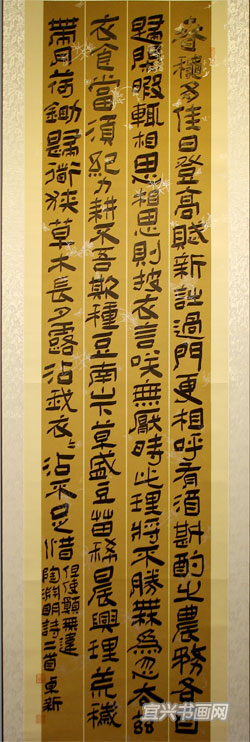 春穐多佳日登高賦新詩過門更相呼有酒斟酌之農務各自
歸閑暇輒相思相思則披衣言咲無厭時此理將不勝無為忽去茲
衣食當須紀力耕不吾欺種豆南山下草盛豆苗稀晨興理荒穢
帶月荷鋤歸道狹草木長夕露沾我衣〻沾不足惜
但使願無違
陶淵明詩二首卓新
宜兴书画网